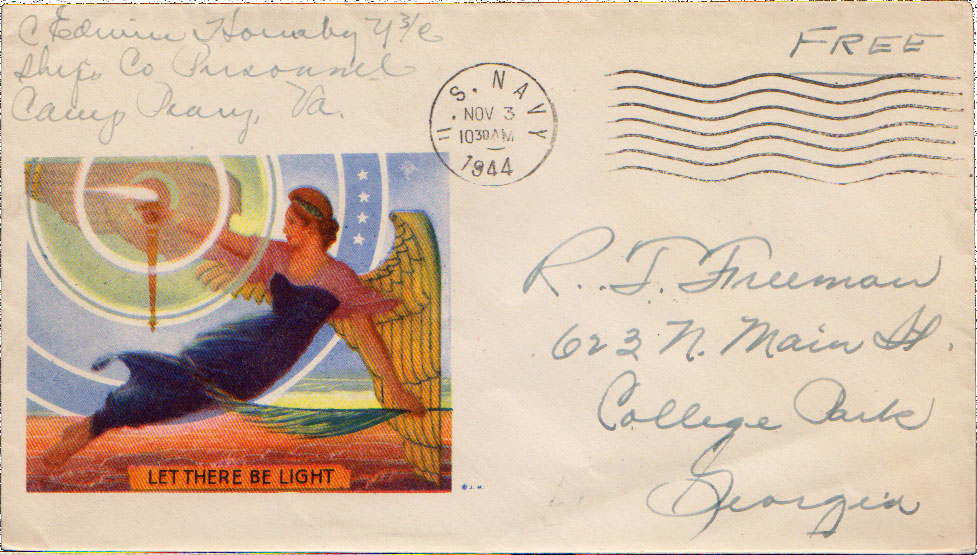 C Edwin Hornsby Y3/c
Ship's Co Personnel
Camp Peary, Va.
FREE
U. S. NAVY
NOV 3
10 30 AM
1944
R. T. Freeman
623 N. Main St.
College Park
Georgia
LET THERE BE LIGHT
© J. M.